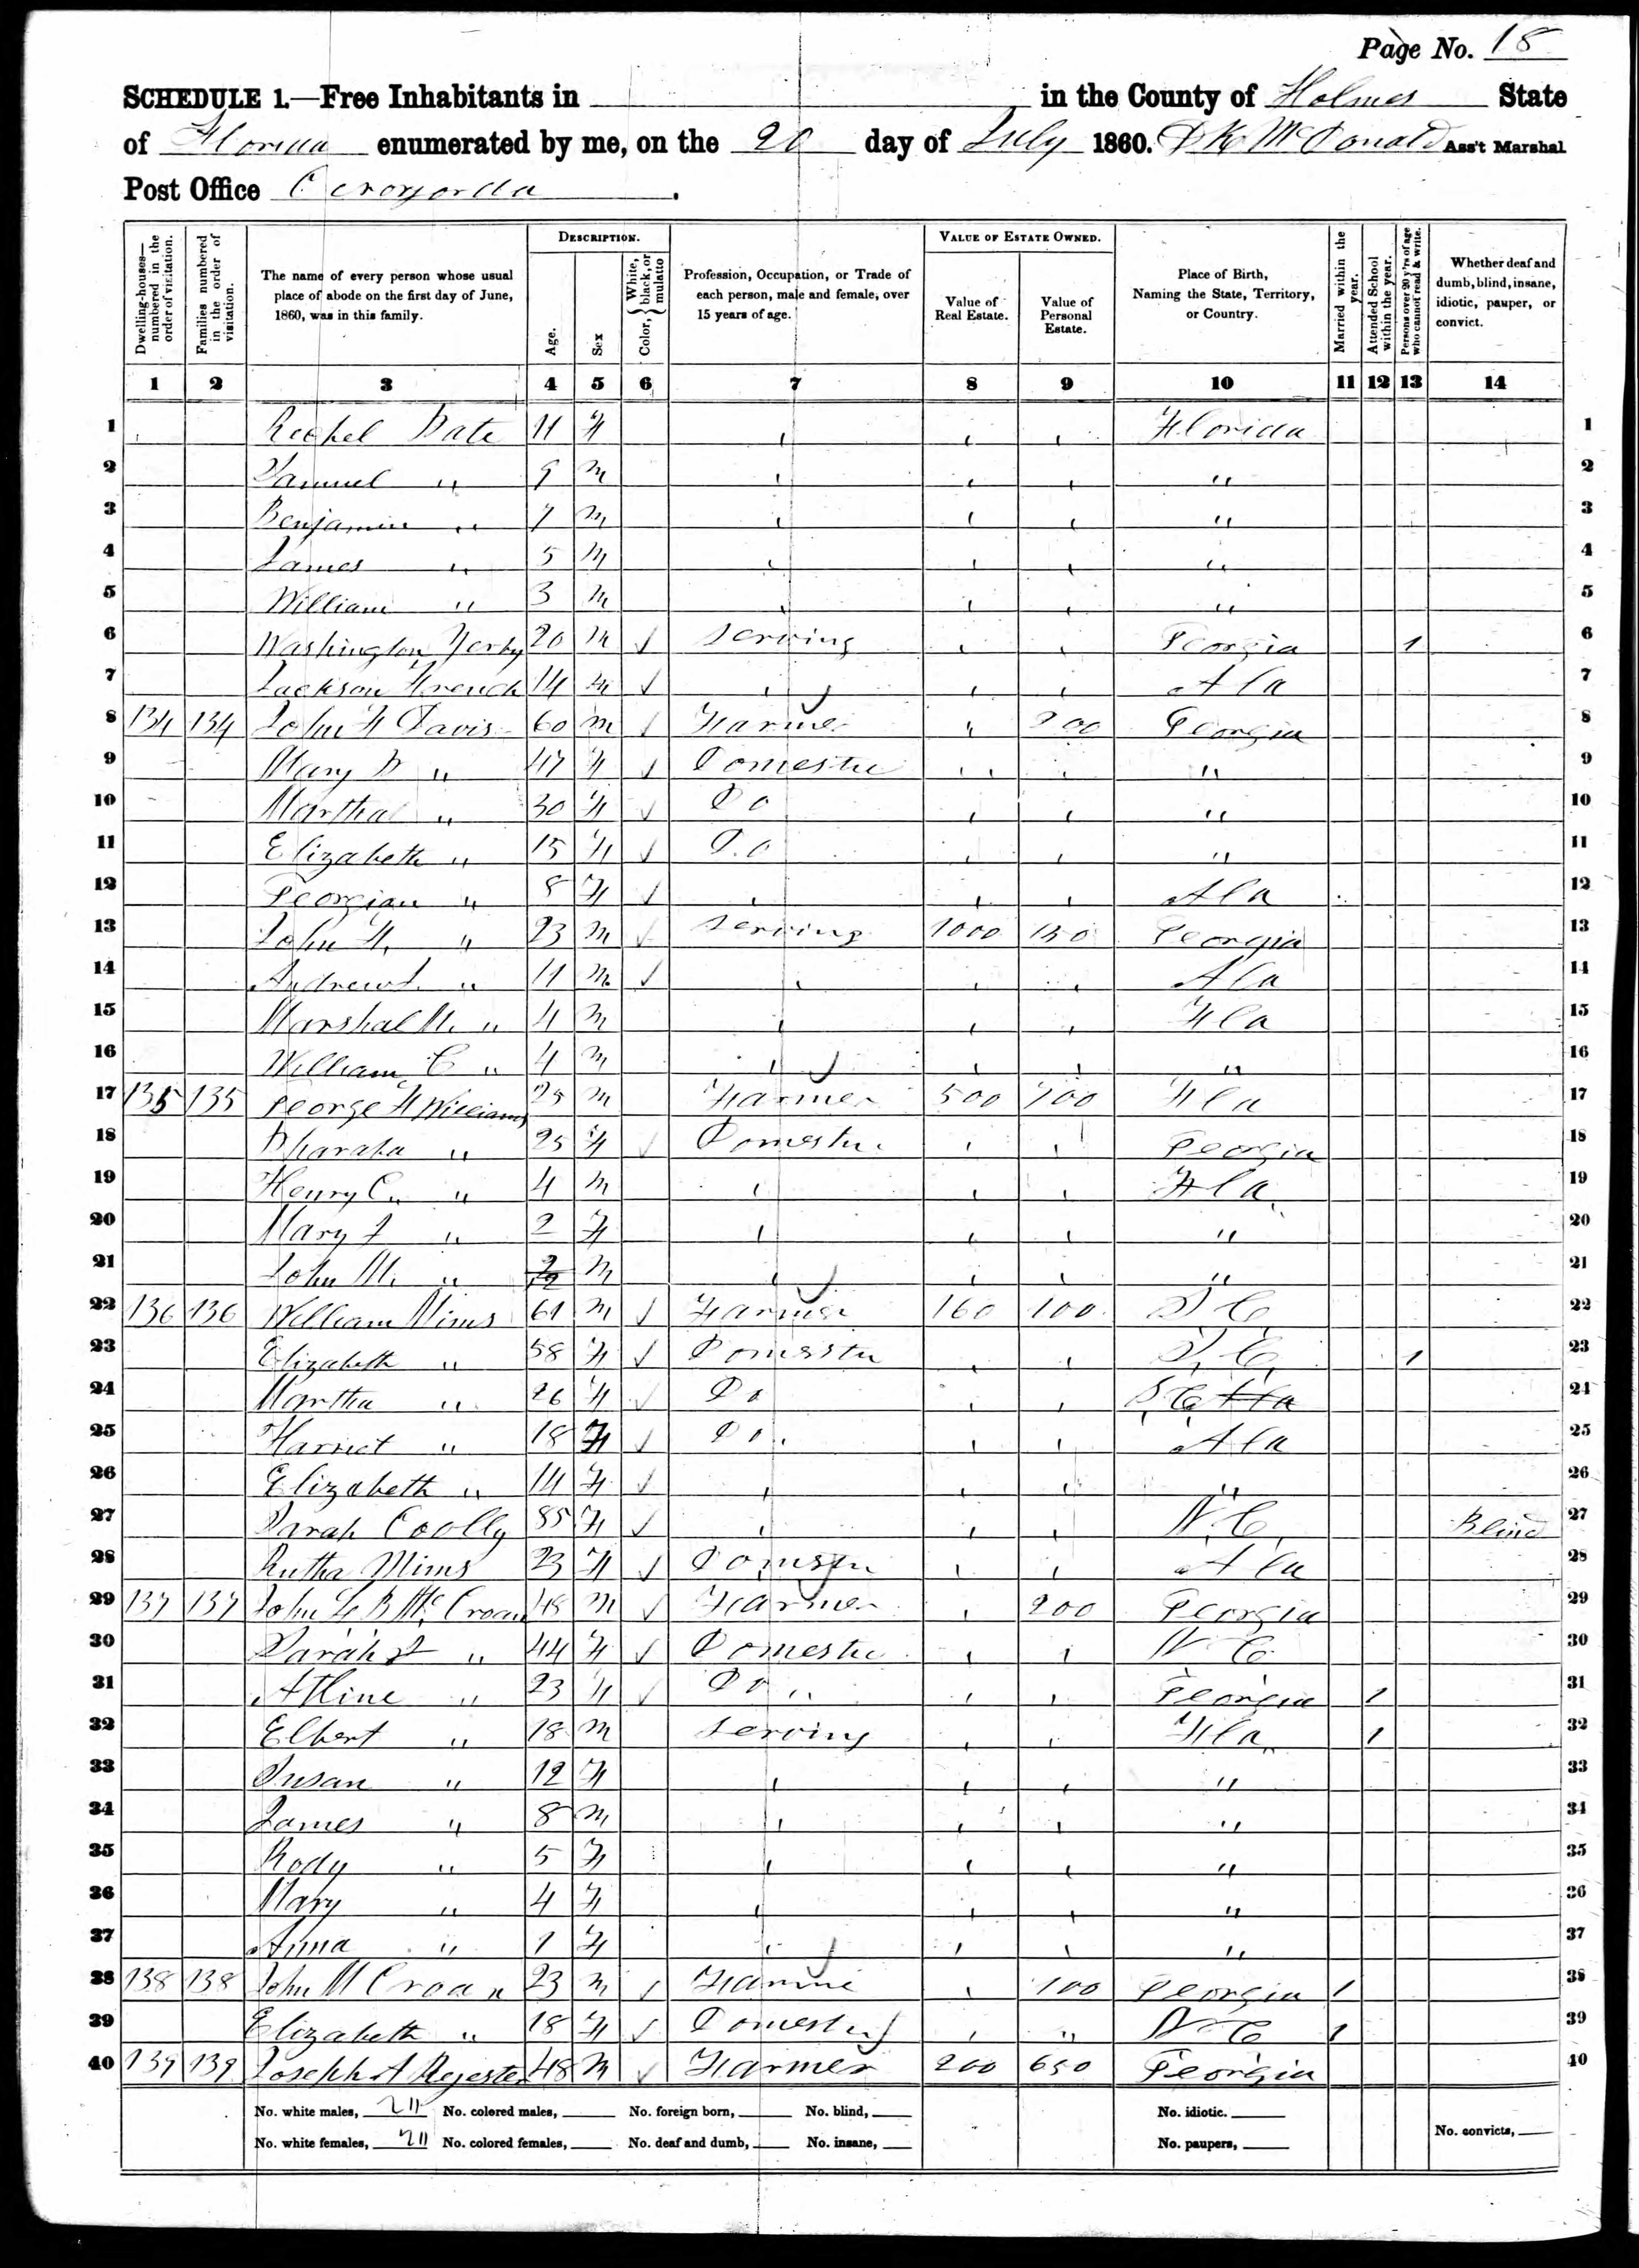 Page No. 18
SCHEDULE 1.—Free Inhabitants in in the County of Holmes State
of Florida enumerated by me, on the 20 day of July 1860. D K McDonald Ass't Marshal
Post Office Cerrogorda.
Dwelling-houses—numbered in the order of visitation.
Families numbered in the order of visitation.
The name of every person whose usual place of abode on the first day of June, 1860, was in this family.
DESCRIPTION.
Age.
Sex
Color, {White, black, or mulatto
Profession, Occupation, or Trade of each person, male and female, over 15 years of age.
VALUE OF ESTATE OWNED.
Value of Real Estate.
Value of Personal Estate.
Place of Birth, Naming the State, Territory, or Country.
Married within the year.
Attended School within the year.
Persons over 20 y'rs of age who cannot read & write.
Whether deaf and dumb, blind, insane, idiotic, pauper, or convict.
1 2 3 4 5 6 7 8 9 10 11 12 13 14
1 Rachel Bate 11 F Florida 1
2 Samuel " 9 M " 2
3 Benjamin " 7 M " 3
4 James " 5 M " 4
5 William " 3 M " 5
6 Washington Yerby 20 M Serving Georgia 1 6
7 Jackson French 14 M Ala 7
8 134 134 John F Davis 60 M Farmer 200 Georgia 8
9 Mary B " 47 F Domestic " 9
10 Martha " 30 F Do " 10
11 Elizabeth " 15 F Do " 11
12 Georgian " 8 F Ala 12
13 John H. " 23 M Serving 1000 150 Georgia 13
14 Andrew J. " 11 M Ala 14
15 Marshal M. " 4 M Fla 15
16 William C " 4 M " 16
17 135 135 George F Williams 25 M Farmer 500 700 Fla 17
18 " 25 F Domestic Georgia 18
19 Henry C. " 4 M Fla 19
20 Mary J " 2 F " 20
21 John M. " 2/12 M " 21
22 136 136 William Mims 61 M Farmer 160 100 S C 22
23 Elizabeth " 58 F Domestic S. C. 1 23
24 Martha " 26 F Do S C Ala 24
25 Harriet " 18 F Do Ala 25
26 Elizabeth " 14 F " 26
27 Sarah Coolly 85 F N. C. Blind 27
28 Rutha Mims 23 F Domestic Ala 28
29 137 137 John L B McCroan 48 M Farmer 200 Georgia 29
30 Sarah " 44 F Domestic N C 30
31 Atline " 23 F Do " Georgia 1 31
32 Elbert " 18 M Serving Fla 1 32
33 Susan " 12 F " 33
34 James " 8 M " 34
35 Rody " 5 F " 35
36 Mary " 4 F " 36
37 Anna " 1 F " 37
38 138 138 John McCroan 23 M Farmer 100 Georgia 1 38
39 Elizabeth " 18 F Domestic " N C 1 39
40 139 139 Joseph A Regester 48 M Farmer 200 650 Georgia 40
No. white males, No. colored males, No. foreign born, No. blind, No. idiotic.
No. white females, No. colored females, No. deaf and dumb, No. insane, No. paupers, No. convicts,